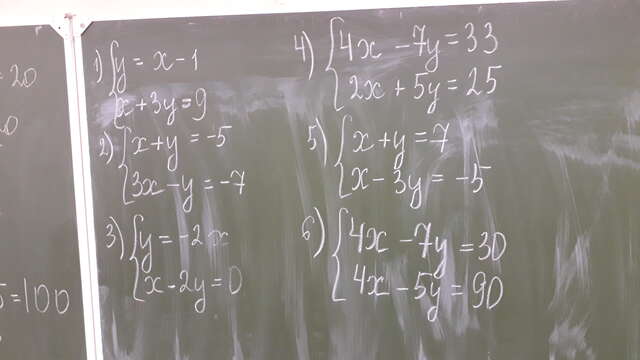 =20
1) y = x - 1
x + 3y = 9
2) x + y = -5
3x - y = -7
3) y = -2x
x - 2y = 0
4) 4x - 7y = 33
2x + 5y = 25
5) x + y = 7
x - 3y = -5
6) 4x - 7y = 30
4x - 5y = 90
5 = 100